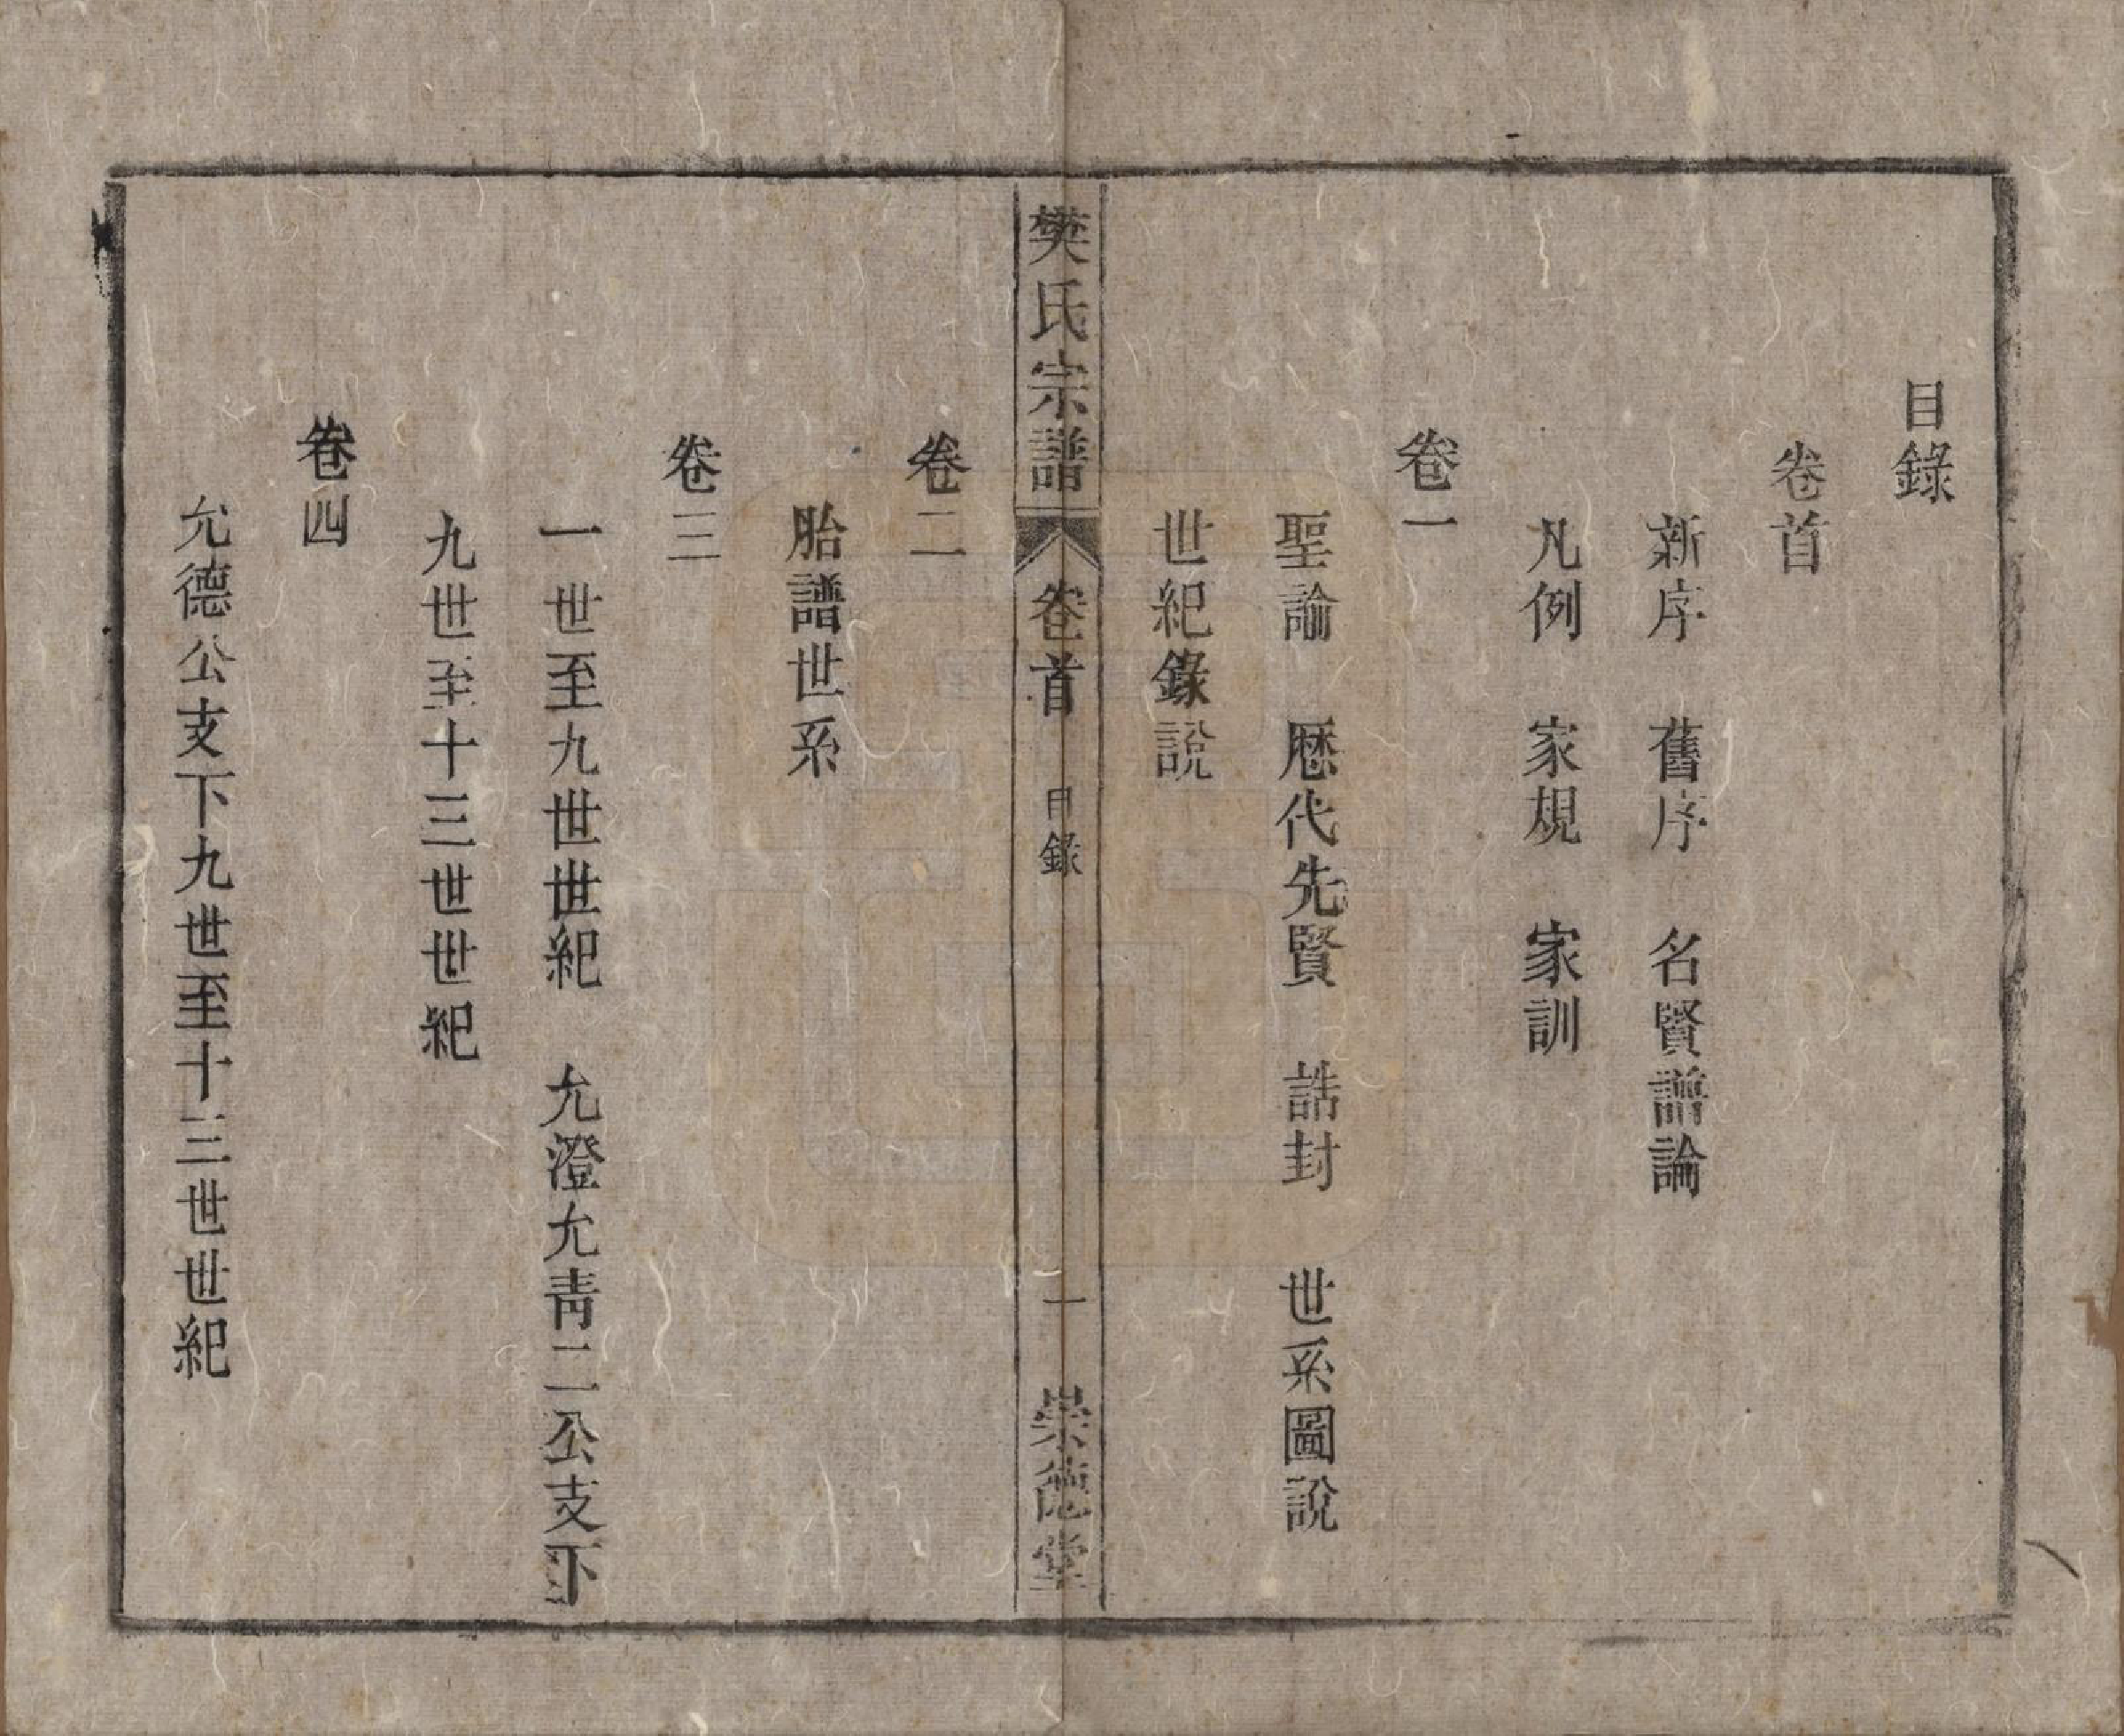 目錄
卷首
新序　舊序　名賢譜論
凡例　家規　家訓
卷一
聖諭　歷代先賢　誥封　世系圖說
世紀錄說
樊氏宗譜　卷首　目錄　一　崇德堂
卷二
胎譜世系
卷三
一世至九世世紀　允澄允靑二公支下
九世至十三世世紀
卷四
允德公支下九世至十三世世紀